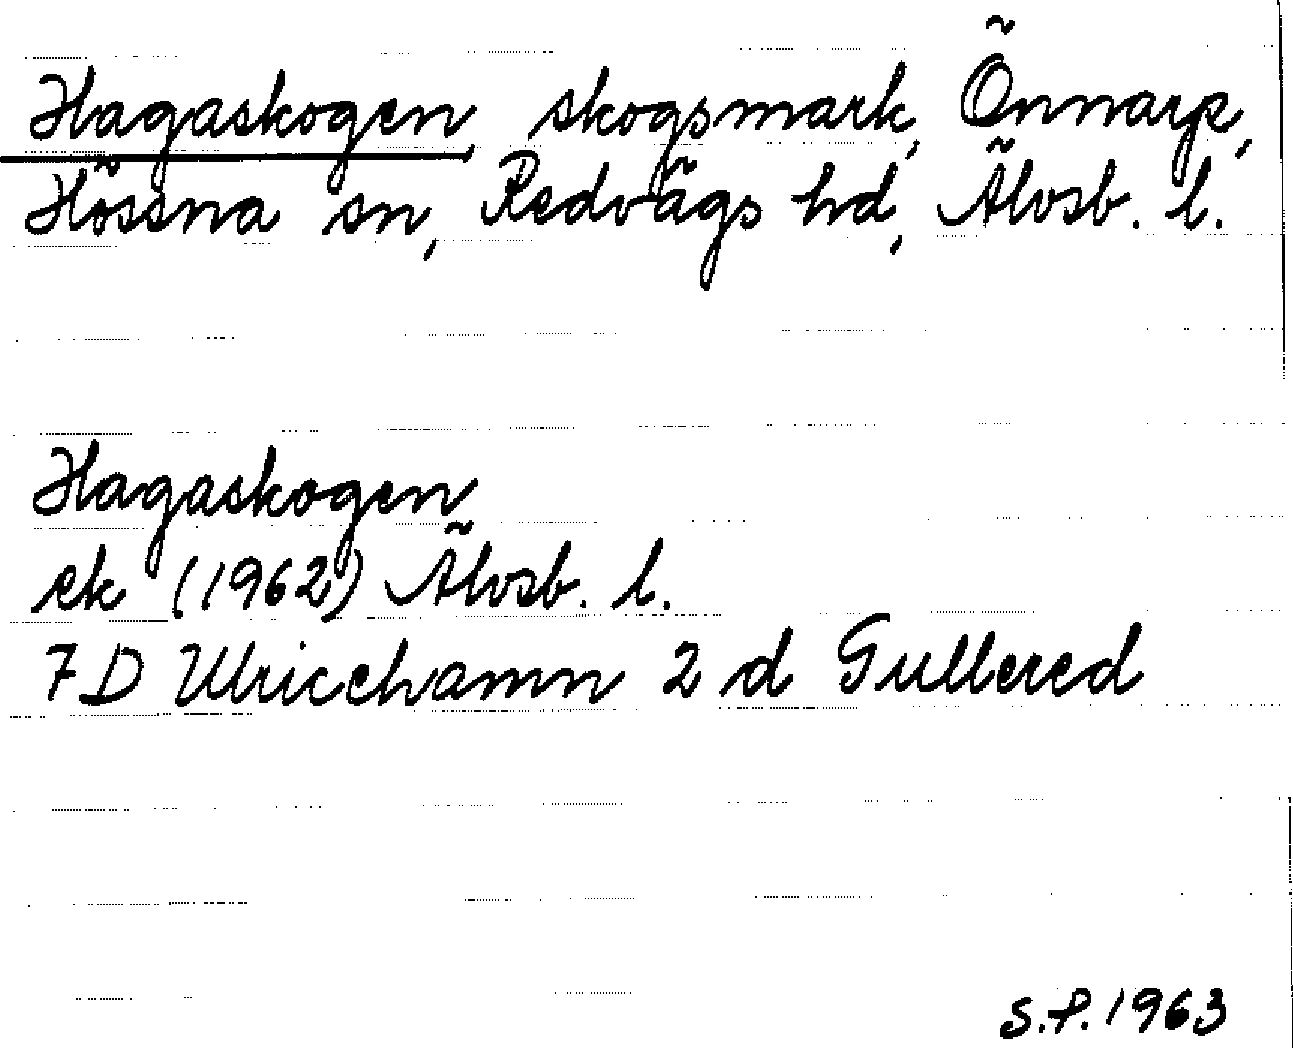 Hagaskogen, skogsmark, Önnarp,
Hössna sn, Redvägs hd, Älvsb. l.
Hagaskogen
ek (1962) Älvsb. l.
7D Ulricehamn 2 d Gullered
S.P. 1963